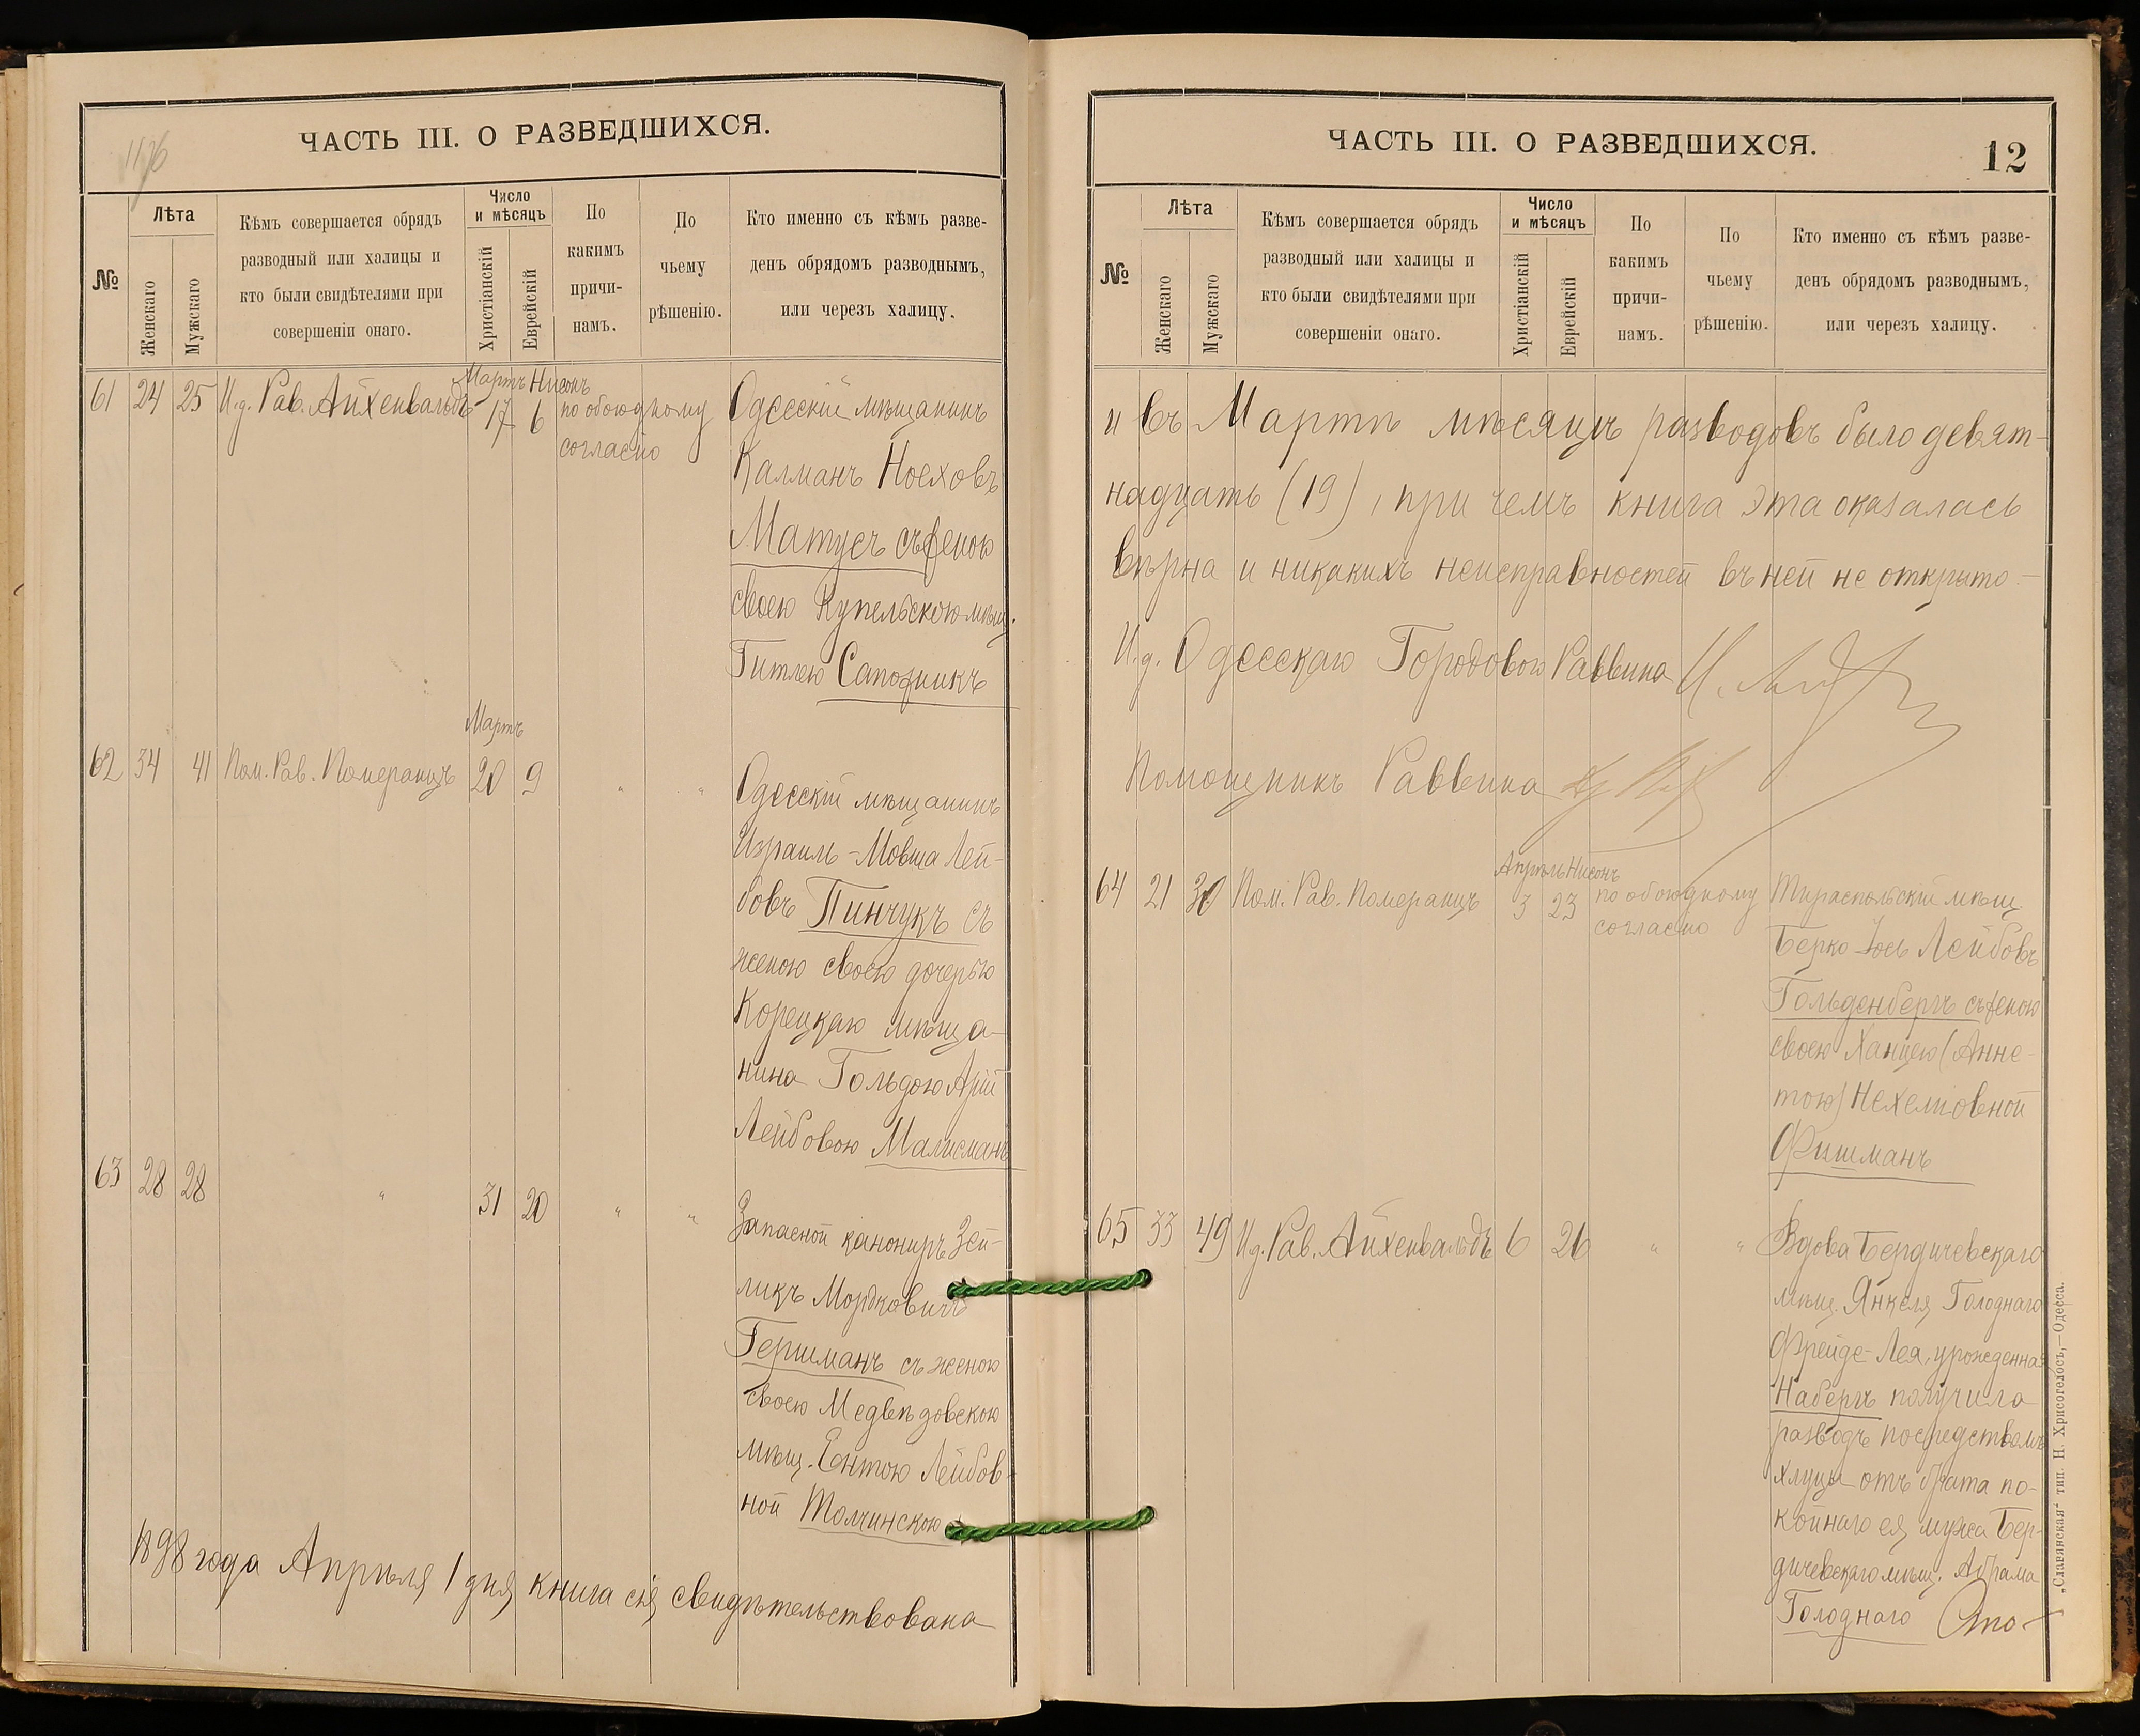 ЧАСТЬ III. О РАЗВЕДШИХСЯ.
№
Лѣта
Женскаго
Мужскаго
Кѣмъ совершается обрядъ
разводный или халицы и
кто были свидѣтелями при
совершеніи онаго.
Число
и мѣсяцъ
Христіанскій
Еврейскій
По
какимъ
причи-
намъ.
По
чьему
рѣшенію.
Кто именно съ кѣмъ разве-
денъ обрядомъ разводнымъ,
или черезъ халицу.
61 24 25 И.д. Рав. Айхенвальдъ
Мартъ Нисонъ
17 6
по обоюдному
согласію
Одесскій мѣщанинъ
Калманъ Ноеховъ
Матусъ съ женою
своею Купельскою мѣщ.
Гитлею Сапожникъ
62 34 41 Пом. Рав. Померанцъ
Мартъ
20 9 " "
Одесскій мѣщанинъ
Израиль-Мовша Лей-
бовъ Пинчукъ съ
женою своею дочерью
Корецкаго мѣща-
нина Гольдою Арій
Лейбовою Малисманъ
63 28 28 " 31 20 " "
Запасной канониръ Зей-
ликъ Мордковичъ
Гершманъ съ женою
своею Медвѣдовскою
мѣщ. Ентою Лейбов-
ной Толчинскою
1898 года Апрѣля 1 дня книга сія свидѣтельствована
ЧАСТЬ III. О РАЗВЕДШИХСЯ.
12
№
Лѣта
Женскаго
Мужскаго
Кѣмъ совершается обрядъ
разводный или халицы и
кто были свидѣтелями при
совершеніи онаго.
Число
и мѣсяцъ
Христіанскій
Еврейскій
По
какимъ
причи-
намъ.
По
чьему
рѣшенію.
Кто именно съ кѣмъ разве-
денъ обрядомъ разводнымъ,
или черезъ халицу.
и въ Мартѣ мѣсяцѣ разводовъ было девят-
надцать (19), при чемъ книга эта оказалась
вѣрна и никакихъ неисправностей въ ней не открыто.-
И.д. Одесскаго Городового Раввина
Помощникъ Раввина
64 21 30 Пом. Рав. Померанцъ
Апрѣль Нисонъ
3 23
по обоюдному
согласію
Тираспольскій мѣщ.
Берко-Іось Лейбовъ
Гольденбергъ съ женою
своею Ханцею (Анне-
тою) Нехеміовной
Фишманъ
65 33 49 И.д. Рав. Айхенвальдъ 6 26 " "
Вдова Бердичевскаго
мѣщ. Янкеля Голоднаго
Фрейде-Лея, урожденная
Набергъ получила
разводъ посредствомъ
хлуцы отъ брата по-
койнаго ея мужа Бер-
дичевскаго мѣщ. Абрама
Голоднаго Сто-
„Славянская“ тип. Н. Хрисогелосъ,—Одесса.